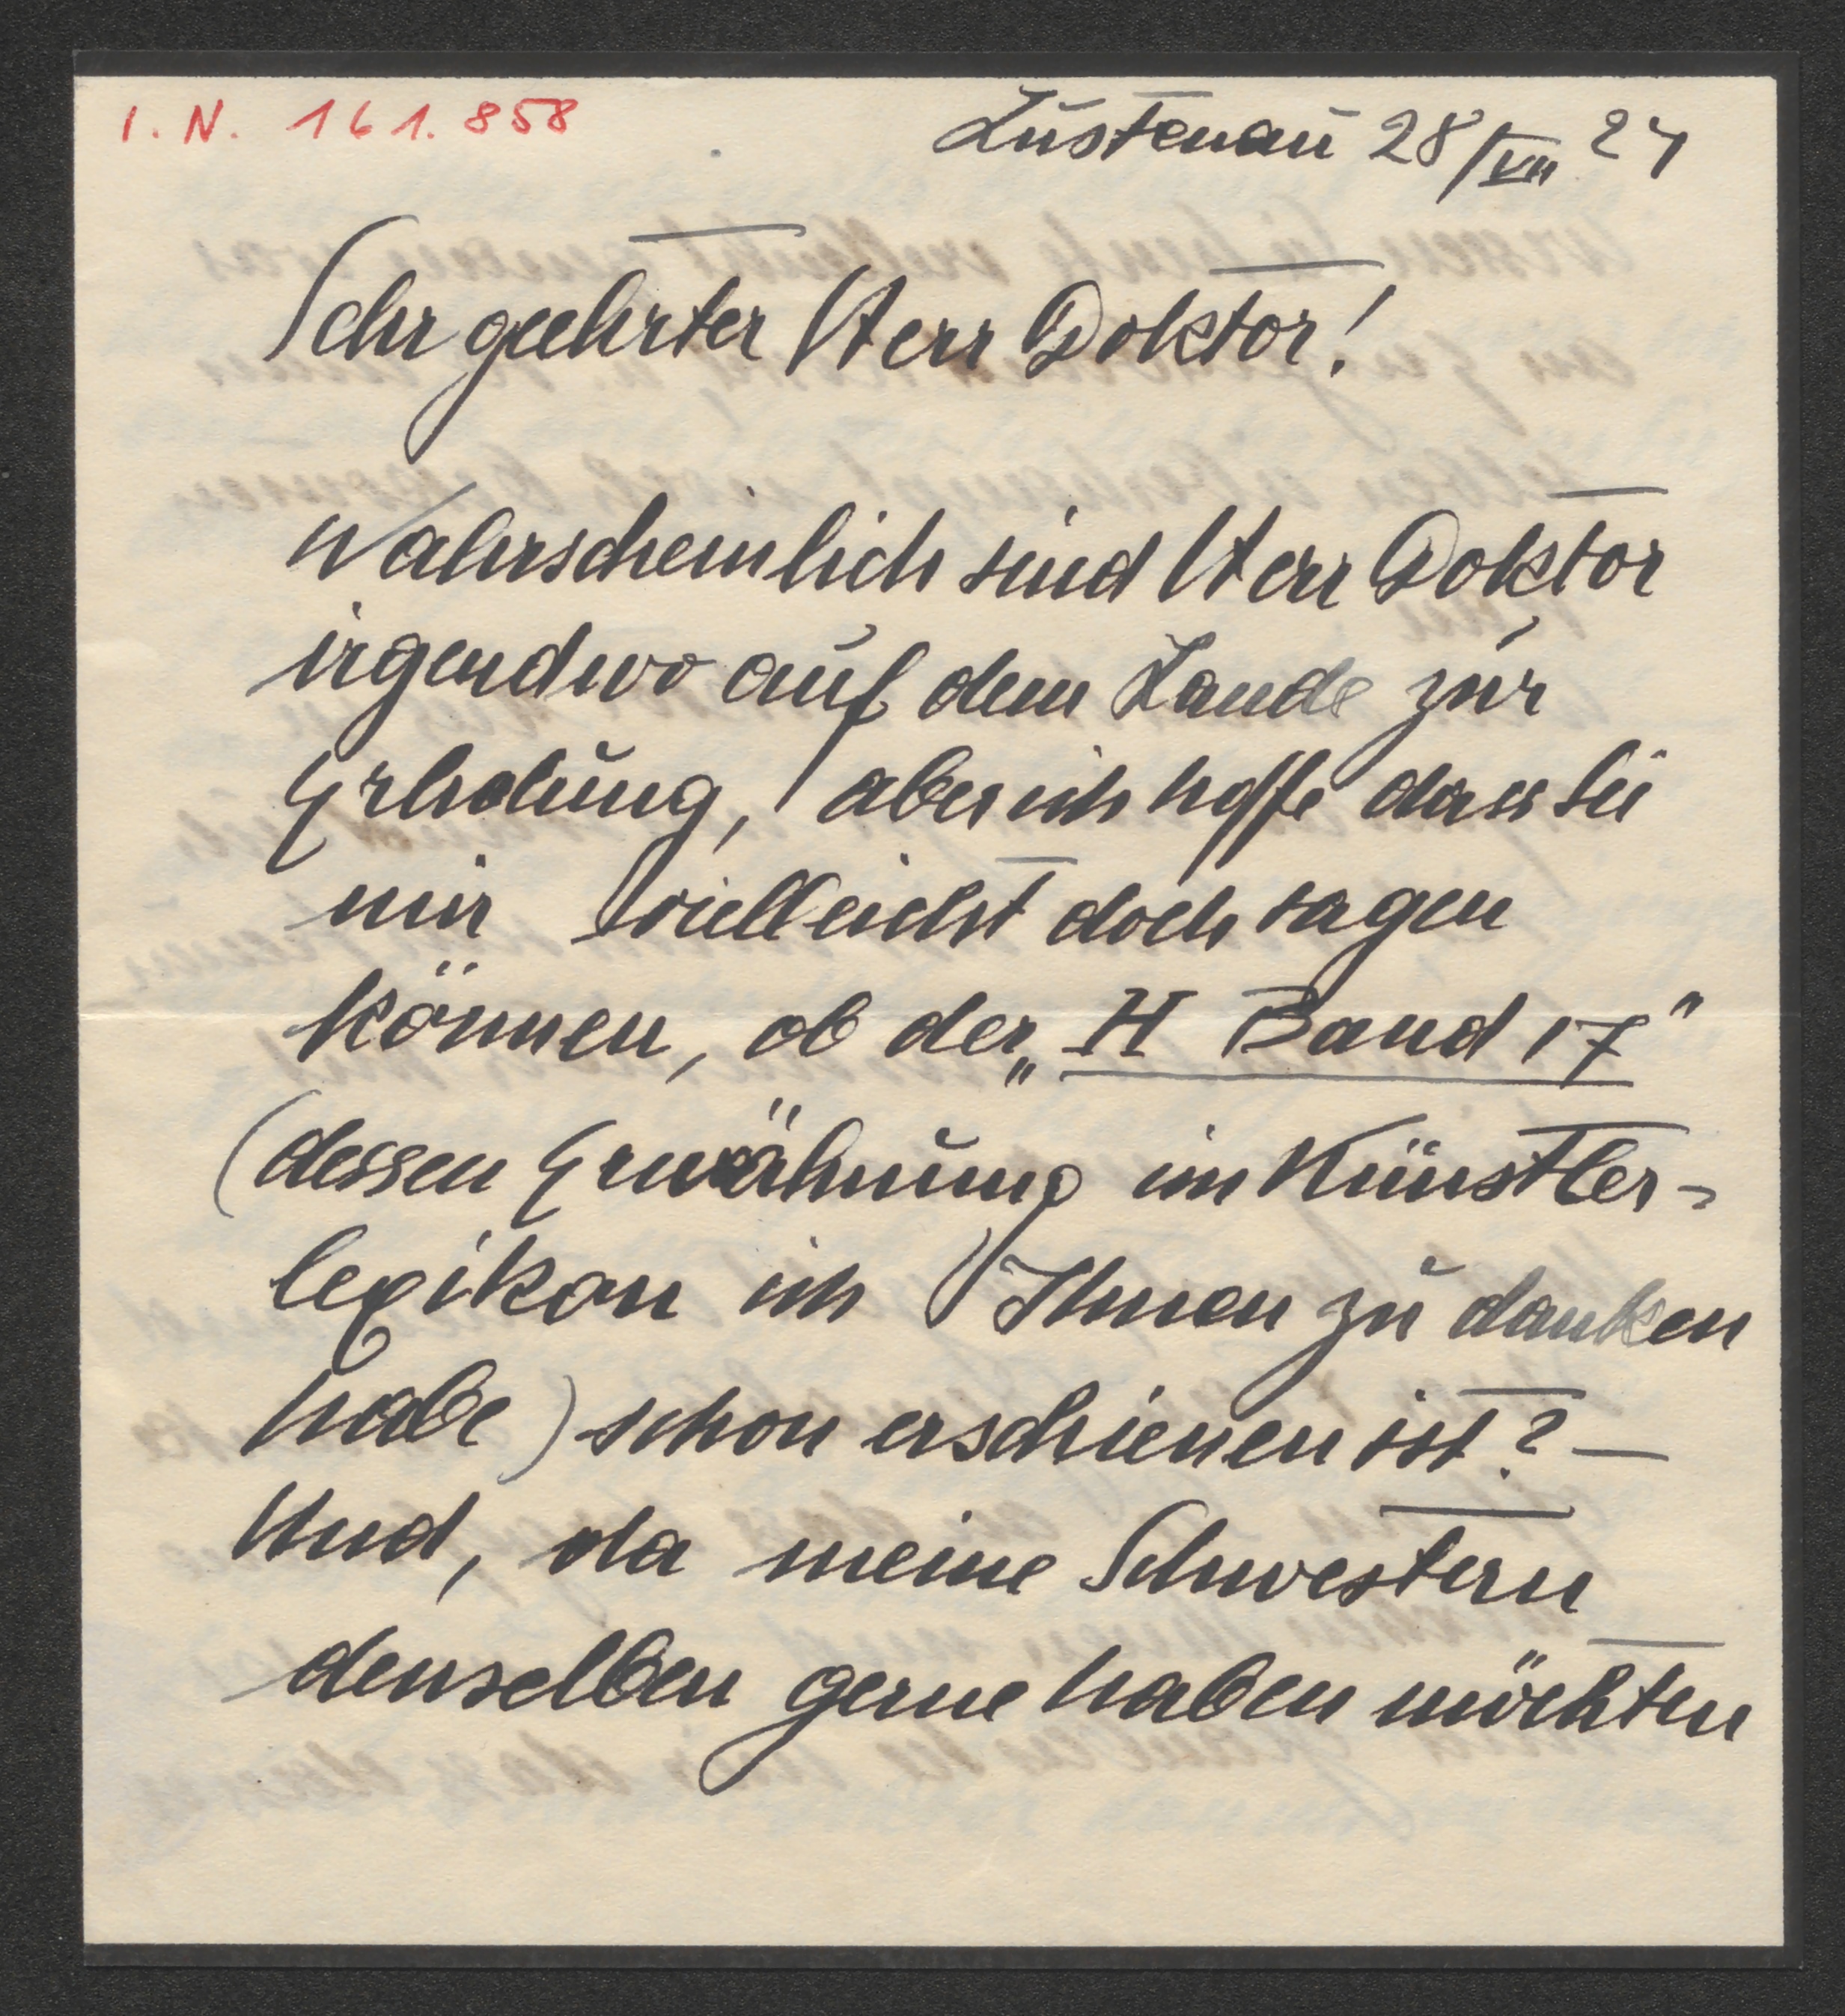 I. N. 161.858
Lustenau 28/VII 24
Sehr geehrter Herr Doktor!
Wahrscheinlich sind Herr Doktor
irgendwo auf dem Lande zur
Erholung, aber ich hoffe dass Sie
mir vielleicht doch sagen
können, ob der „H Band 17"
(dessen Erwähnung im Künstler-
lexikon ich Ihnen zu danken
habe) schon erschienen ist? —
Und, da meine Schwestern
denselben gerne haben möchten